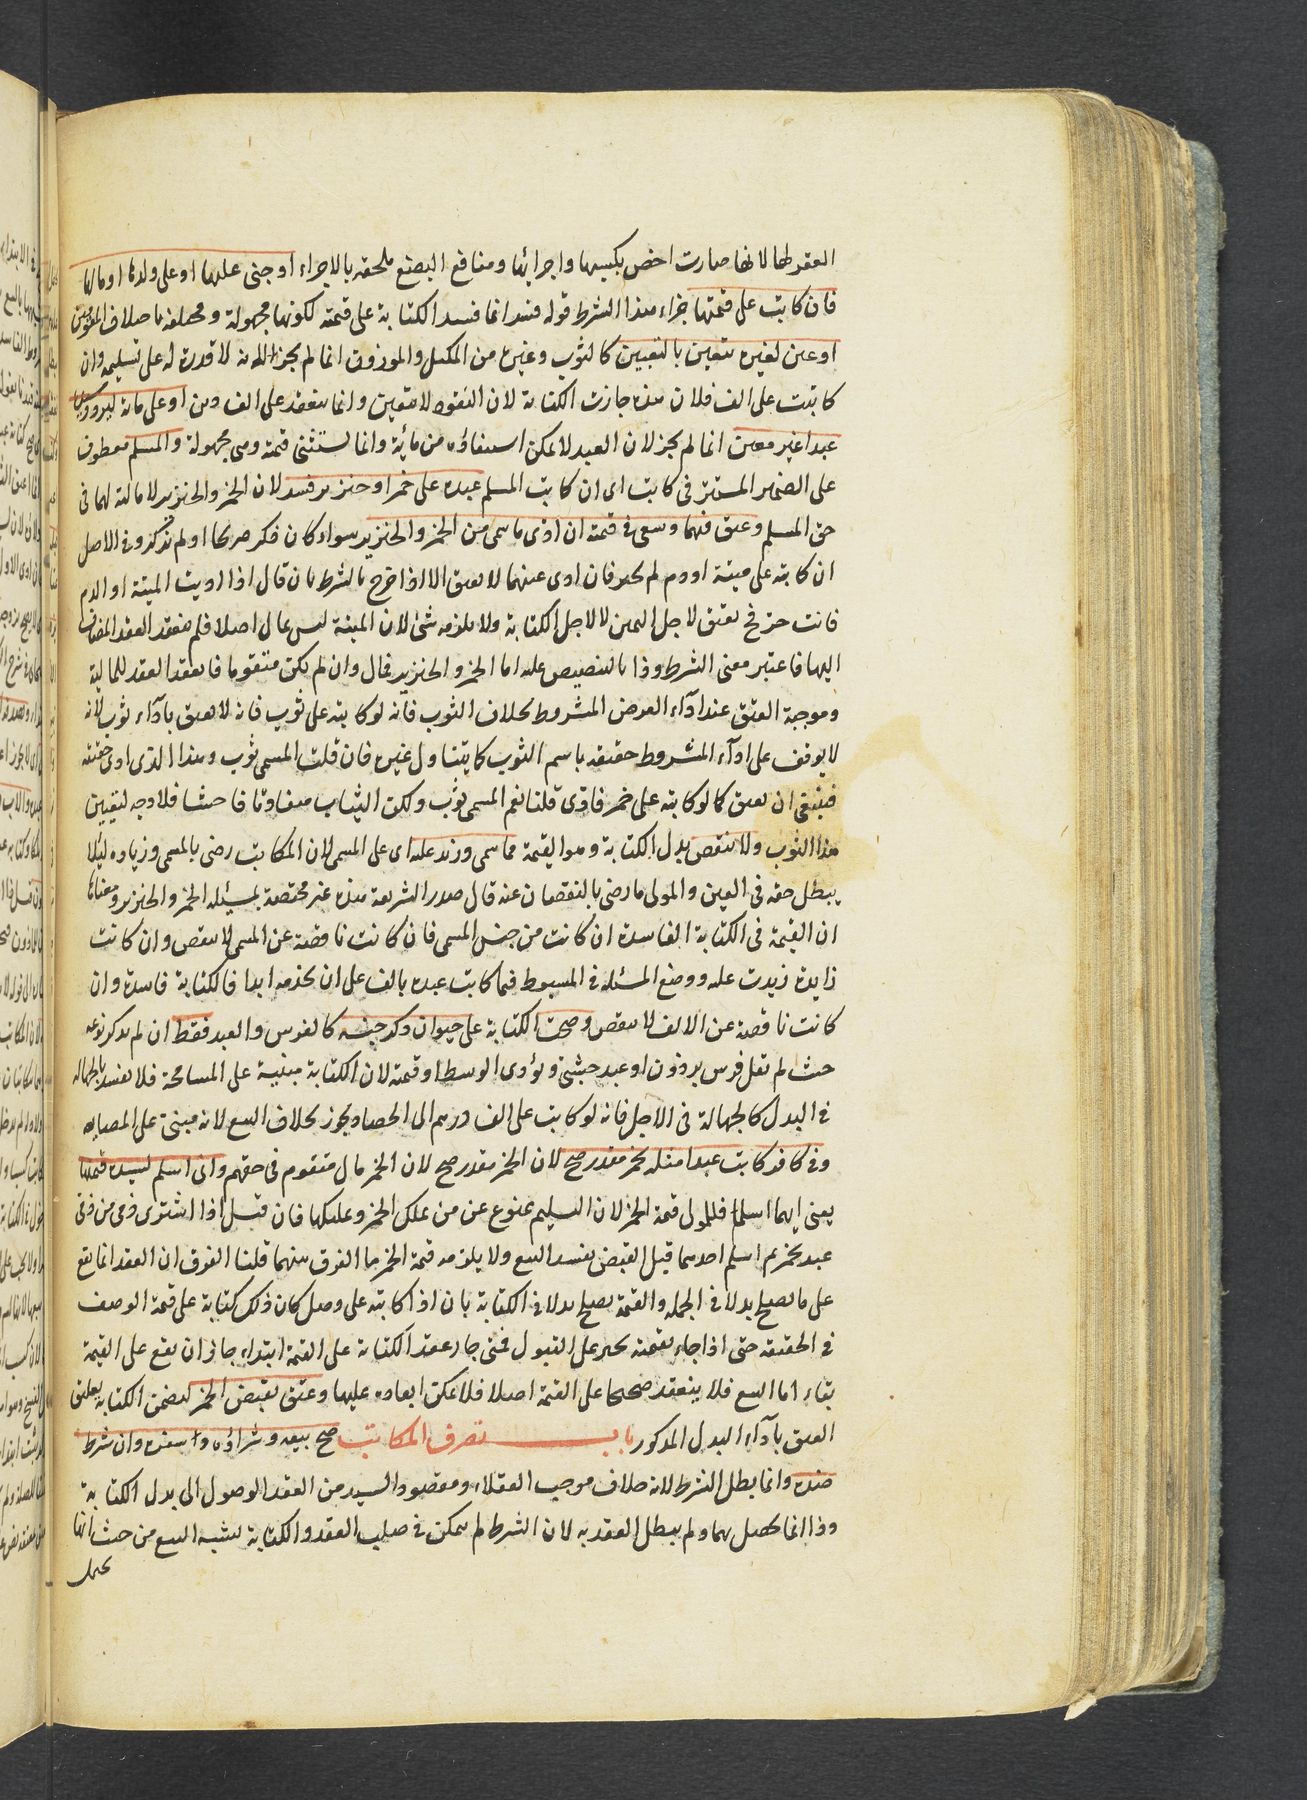 العقر لها لانها صارت اخص بكسبها واجزائها ومنافع البضع ملحقة بالاجزاء او جنى عليها او على ولدها او مالها
فان كاتب على قيمتها جزاء هذا الشرط قوله فسد انما فسد الكتابة على قيمته لكونها مجهولة ومختلفة باختلاف المقومين
او عين لغيره يتعين بالتعيين كالثوب وغيره من المكيل والموزون انما لم يجز لانه لا قدرة له على تسليمه وان
كاتبت على الف فلان هذه جازت الكتابة لان النقود لا تتعين وانما ينعقد على الف دين او على مائة ليرد
عبدا غير معين انما لم يجز لان العبد لا يمكن استثناؤه من مائة وانما تستثنى قيمته وهى مجهولة والمسلم معطوف
على الضمير المستتر فى كاتب اى ان كاتب المسلم عبده على خمر او خنزير فسد لان الخمر والخنزير لا مالية لهما فى
حق المسلم وعتق فيهما وسعى فى قيمته ان ادى ما سمى من الخمر والخنزير سواء كان ذكر صريحا او لم يذكر وفى الاصل
ان كاتبه على ميتة او دم لم يجز فان ادى عينهما لا يعتق الا اذا خرج بالشرط بان قال اذا اديت الميتة او الدم
فانت حر فح يعتق لاجل اليمين لا لاجل الكتابة ولا يلزمه شئ لان الميتة ليس بمال اصلا فلم ينعقد العقد المضاف
اليها فاعتبر معنى الشرط وذا بالتنصيص عليه اما الخمر والخنزير فمال وان لم يكن متقوما فانعقد العقد للمالية
وموجبه العتق عند اداء العوض المشروط بخلاف الثوب فانه لو كاتبه على ثوب فانه لا يعتق باداء ثوب لانه
لا يوقف على اداء المشروط حقيقة باسم الثوب كما يتناول غيره فان قلت المسمى ثوب وهذا الذى ادى حقيقته
فينبغى ان يعتق كما لو كاتبه على خمر فادى قلنا نعم المسمى ثوب ولكن الثياب متفاوتة فاحشا فلا وجه لتعيين
هذا الثوب ولا ينقص بدل الكتابة وهو القيمة مما سمى وزيد عليه اى على المسمى لان المكاتب رضى بالمسمى وزيادة لئلا
يبطل حقه فى العين والمولى ما رضى بالنقصان عنه قال صدر الشريعة هذه غير مختصة بمسئلة الخمر والخنزير ومعناها
ان القيمة فى الكتابة الفاسدة ان كانت من جنس المسمى فان كانت ناقصة عن المسمى لا ينقص وان كانت
زايدة زيدت عليه ووضع المسئلة فى المبسوط فيما كاتب عبده بالف على ان يخدمه ابدا فالكتابة فاسدة وان
كانت ناقصة عن الالف لا ينقص وصحت الكتابة على حيوان ذكر جنسه كالفرس والعبد فقط ان لم يذكر نوعه
حيث لم يقل فرس برذون او عبد حبشى ويؤدى الوسط او قيمته لان الكتابة مبنية على المسامحة فلا يفسد بالجهالة
فى البدل كالجهالة فى الاجل فانه لو كاتب على الف درهم الى الحصاد يجوز بخلاف البيع لانه مبنى على المضايقة
وفى كافر كاتب عبدا مثله بخمر مقدر صح لان الخمر مقدر صح لان الخمر مال متقوم فى حقهم واى اسلم لسيده قيمتها
يعنى ايهما اسلم فللمولى قيمة الخمر لان المسلم ممنوع عن من تملك الخمر وتمليكها فان قيل اذا اشترى ذمى من ذمى
عبد بخمر ثم اسلم احدهما قبل القبض يفسد البيع ولا يلزمه قيمة الخمر ما الفرق بينهما قلنا الفرق ان العقد انما يقع
على ما يصلح بدلا فى الجملة والقيمة يصلح بدلا فى الكتابة بان اذا كاتبه على وصيف كان ذلك كتابة على قيمة الوصيف
فى الحقيقة حتى اذا جاء بقيمته يجبر على القبول فمتى جاز عقد الكتابة على القيمة ابتداء جاز ان يقع على القيمة
بقاء اما البيع فلا ينعقد صحيحا على القيمة اصلا فلا يمكن ابقاءه عليها وعتق بقبض الخمر لتضمن الكتابة تعليق
العتق باداء البدل المذكور باب تصرف المكاتب صح بيعه وشراؤه وسفره وان شرط
ضده وانما يبطل الشرط لانه خلاف موجب العقد لان مقصود السيد من العقد الوصول الى بدل الكتابة
وذا انما يحصل بهما ولم يبطل العقد به لان الشرط لم يتمكن فى صلب العقد والكتابة تشبه البيع من حيث انها
يحتمل